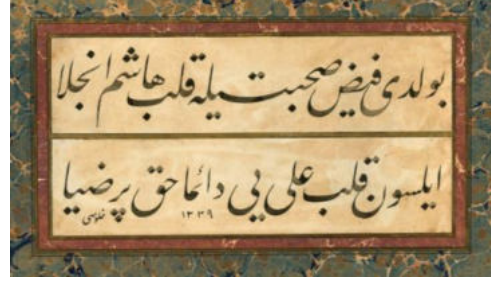 بولدی فیض صحبتیله قلب هاشم انجلا
ایلسون قلب علی یی دائما حق پر ضیا
خلوصی ١٣٣٩